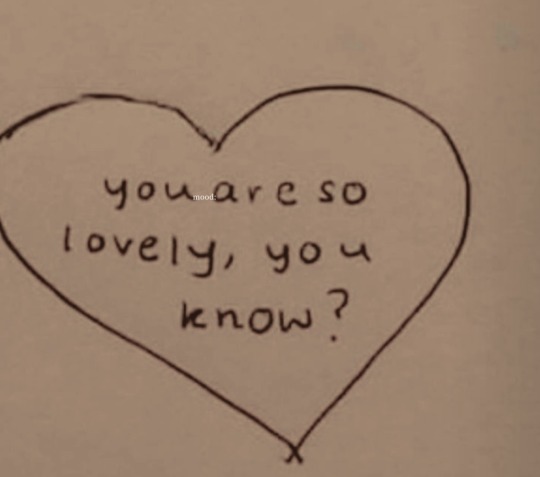 you are so
mood:
lovely, you
know?